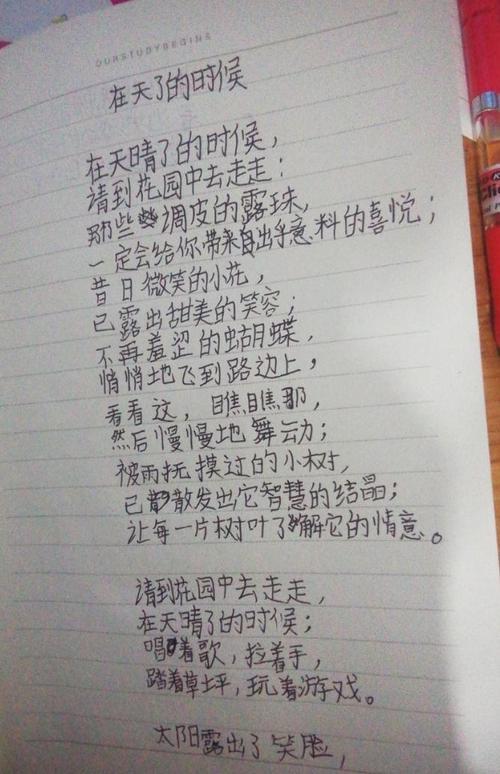 OURSTUDYBEGINS
在天了的时候
在天晴了的时候,
请到花园中去走走:
那些调皮的露珠,
一定会给你带来出乎意料的喜悦;
昔日微笑的小花,
已露出甜美的笑容;
不再羞涩的蝴蝶,
悄悄地飞到路边上,
看看这,瞧瞧那,
然后慢慢地舞动;
被雨抚摸过的小树,
已散发出它智慧的结晶;
让每一片树叶了解它的情意。
请到花园中去走走,
在天晴了的时候;
唱着歌,拉着手,
踏着草坪,玩着游戏。
太阳露出了笑脸,